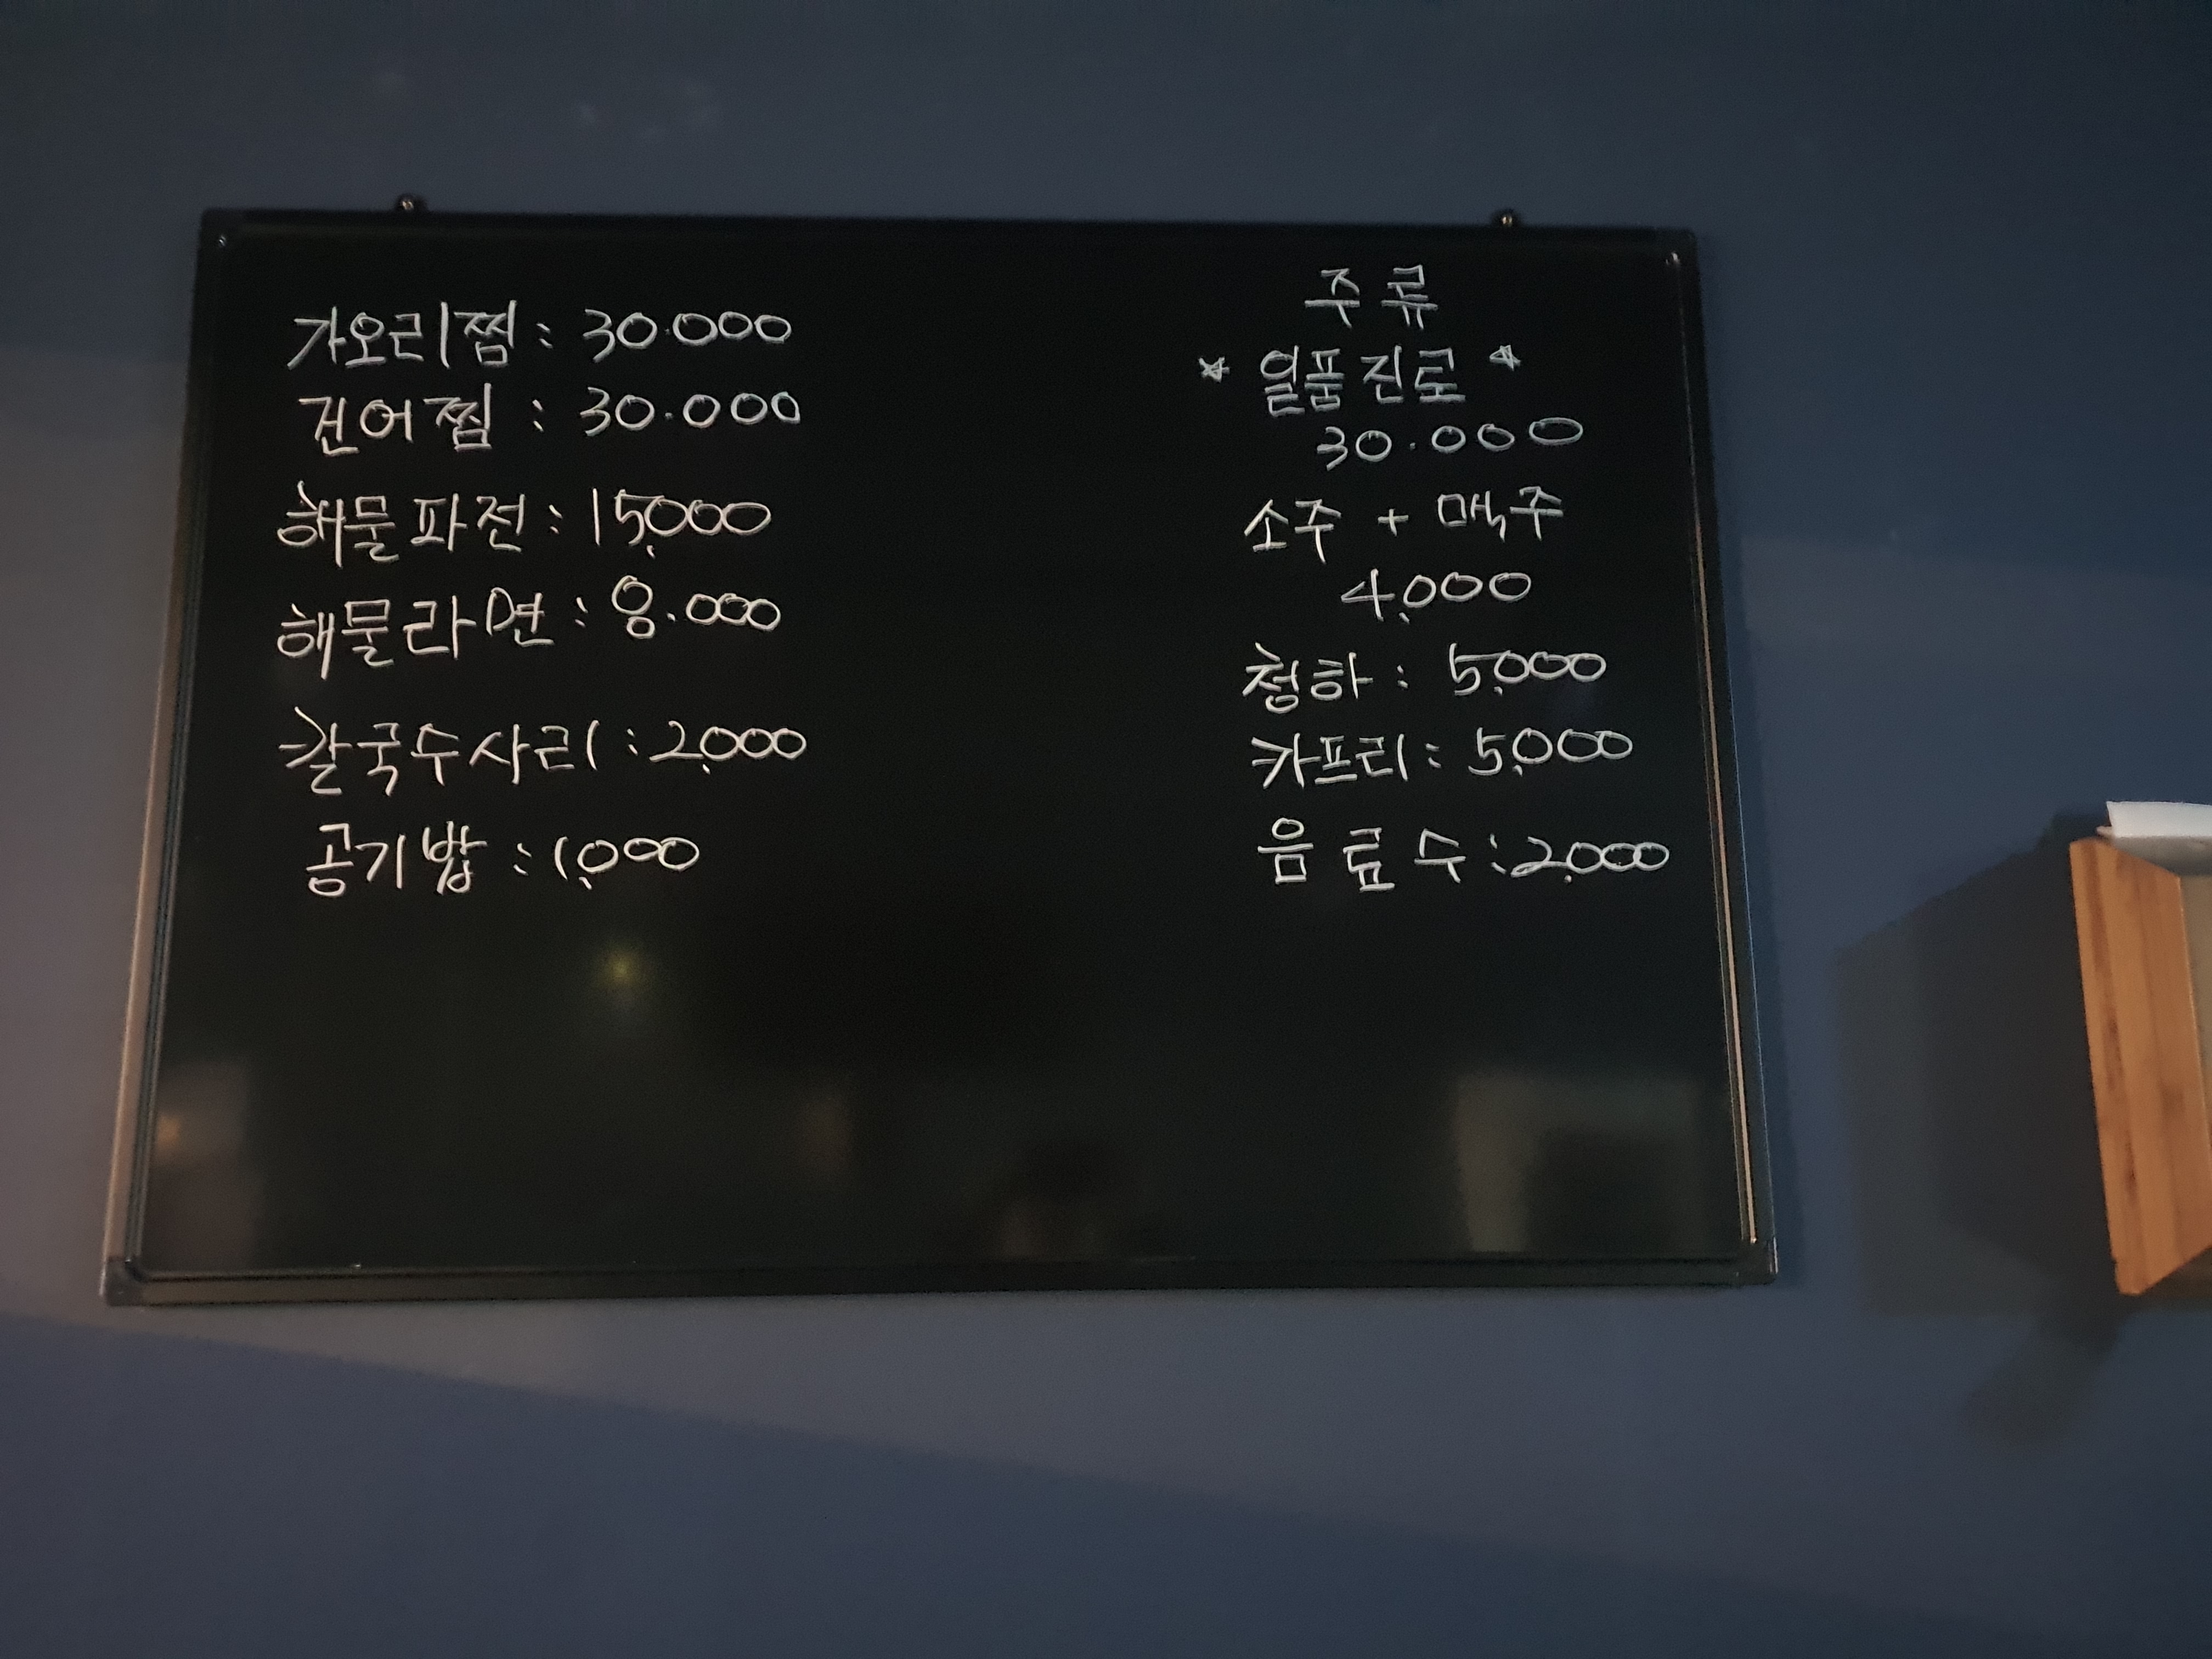 가오리찜 : 30.000
건어찜 : 30.000
해물파전 : 15,000
해물라면 : 8.000
칼국수사리 : 2,000
공기밥 : 1,000
주류
* 일품진로 *
30.000
소주 + 맥주
4,000
청하 : 5,000
카프리 : 5,000
음료수 : 2,000